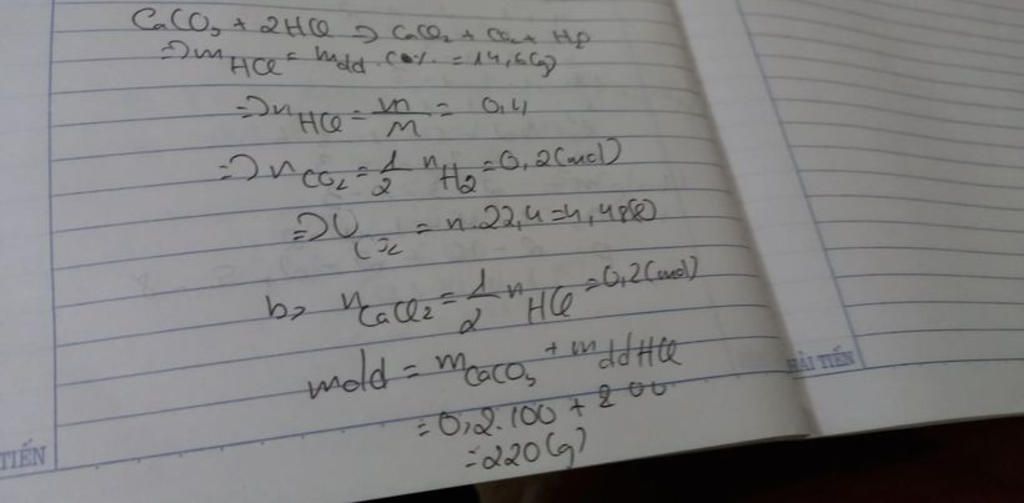 CaCO3 + 2HCl => CaCl2 + CO2 + H2O
=> mHCl = mdd . C0% = 14,6(g)
=> nHCl = m/M = 0,4
=> nCO2 = 1/2 nH2 = 0,2(mol)
=> VCO2 = n.22,4 = 4,48(l)
b, nCaCl2 = 1/2 nHCl = 0,2(mol)
mdd = mCaCO3 + mddHCl
= 0,2.100 + 200
= 220(g)
HẢI TIẾN
TIẾN